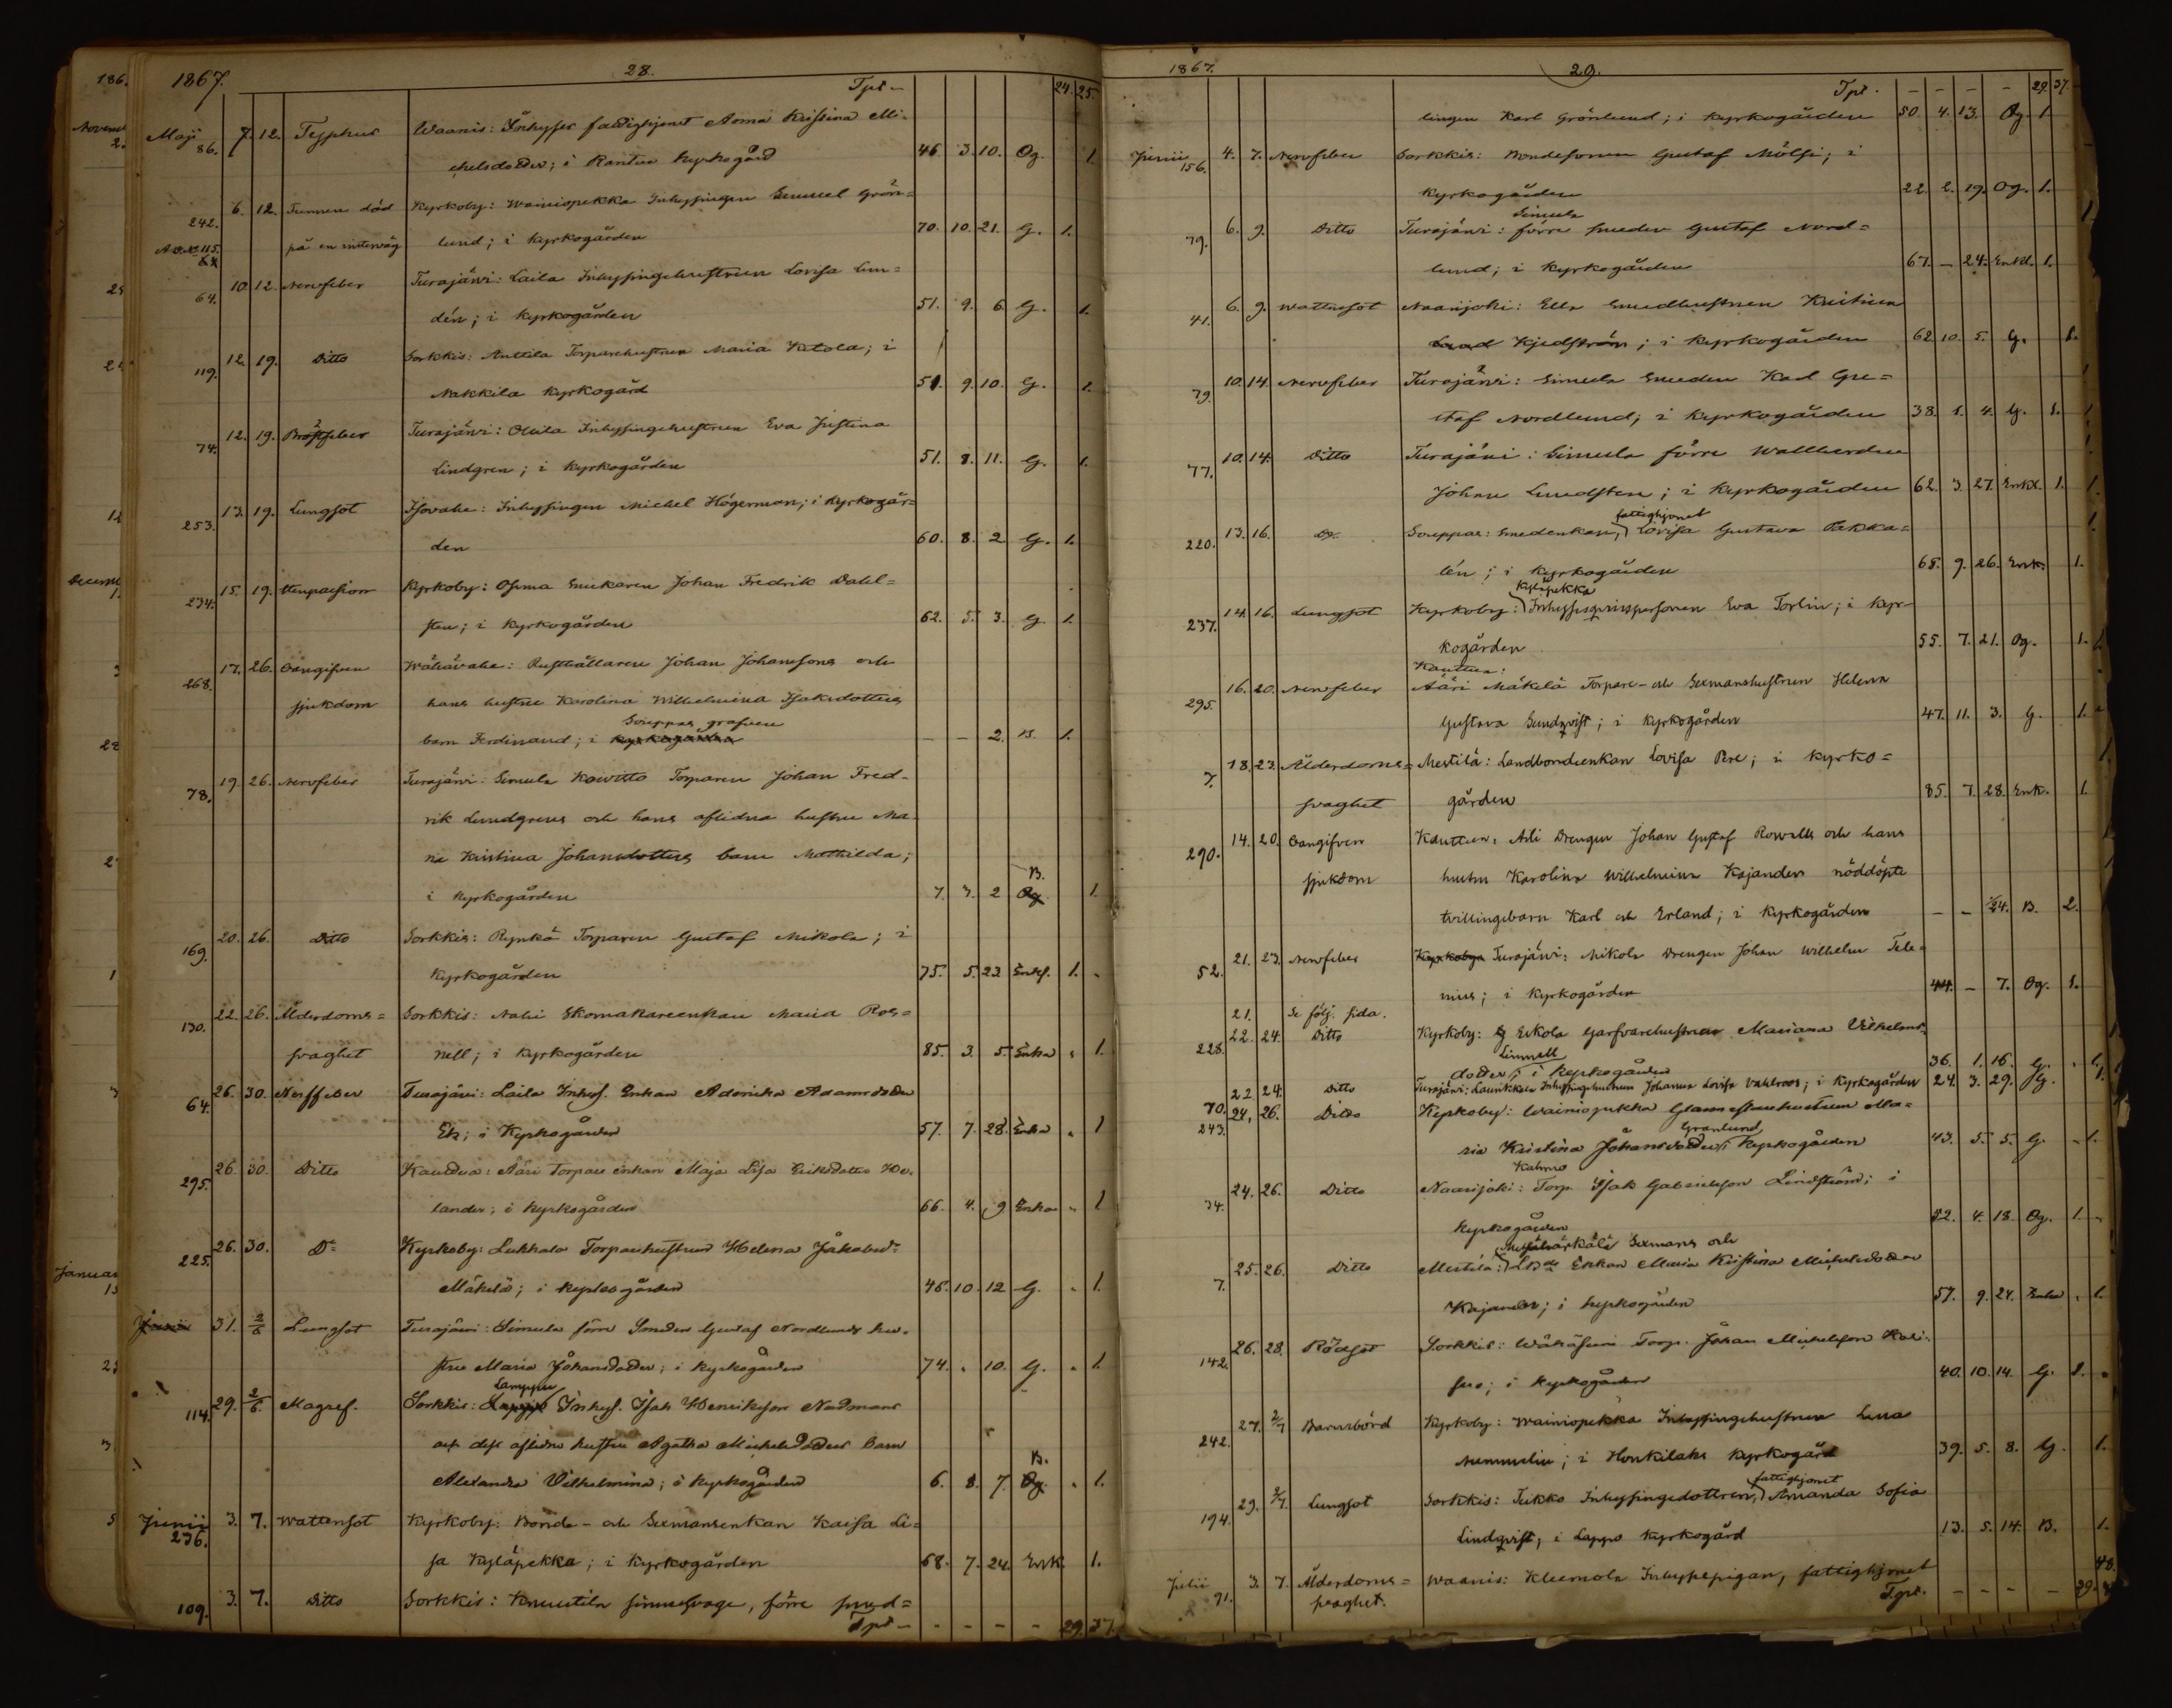 1867. 28.
Tpt - 24. 25.
Maji 86. 7. 12. Typhus Waanis: Inhyses fattighjonet Anna Kristina Mi-
chelsdotter; i Kantua kyrkogård 46. 3. 10. Og. 1.
242. 6. 12. Funnen död Kyrkoby: Wainiopekka Inhysingen Samuel Grön=
på en vinterväg lund; i kyrkogården 70. 10. 21. G. 1.
64. 10. 12. Nervfeber Turajärvi: Laila Inhysingehustrun Lovisa Lin=
dén; i kyrkogården 51. 9. 6. G. 1.
119. 12. 19. Ditto Sorkkis: Anttila Torparehustrun Maria Ketola; i
Nakkila kyrkogård 51. 9. 10. G. 1.
74. 12. 19. Bröstfeber Turajärvi: Ollila Inhysingehustrun Eva Justina
Lindgren; i kyrkogården 51. 8. 11. G. 1.
253. 13. 19. Lungsot Isovahe: Inhysingen Michel Högerman; i kyrkogår=
den 60. 8. 2. G. 1.
234. 15. 19. Kyrkoby: Snickaren Johan Fredrik Dahl=
sten; i kyrkogården 62. 5. 3. G. 1.
268. 17. 26. Oangifven Wähävahe: Rusthållaren Johan Johanssons och
sjukdom hans hustru Karolina Wilhelmina Isaksdotters
Souppas grafven
barn Ferdinand; i kyrkogården - - 2. B. 1.
78. 19. 26. Nervfeber Turajärvi: Simula Koivisto Torparen Johan Fred-
rik Lundgrens och hans aflidna hustru Ma-
ria Kristina Johansdotters barn Mathilda;
B.
i kyrkogården 7. 3. 2 Og 1.
169. 20. 26. Ditto Sorkkis: Rynkö Torparen Gustaf Mikola; i
kyrkogården 75. 5. 23. Enkl. 1.
130. 22. 26. Ålderdoms= Sorkkis: Nahi Skomakareenkan Maria Ros=
svaghet nell; i kyrkogården 85. 3. 5. Enka 1.
64. 26. 30. Nerffeber Turajärvi: Laila Inhys. Enkan Adamsdotter
Ek; i Kyrkogården 57. 7. 28. Enka 1
295. 26. 30. Ditto Kauttua: Ääri Torpare enkan Maja Lisa Eriksdotter
lander; i kyrkogården 66. 4. 9 Enka 1
225. 26. 30. Do Kyrkoby: Lukkala Torparehustrun Helena Jakobsdr
Mäkelä; i kyrkogården 46. 10. 12 G. 1.
Junii 31. 2/6 Lungsot Turajärvi: Simula förre Smeden Gustaf Nordlunds hu-
stru Maria Johansdotter; i kyrkogården 74. 10. G. 1.
Lamppu
114. 29. 2/6. Magref. Sorkkis: Inhys. Isak Henriksson Nedmans
och dess aflidna hustru Agatha Michelsdotters barn
B.
Alexandra Vilhelmina; i kyrkogården 6. 8. 7. Og. 1.
Junii 236. 3. 7. Wattensot Kyrkoby: Bonde- och Sexmansenkan Kaisa Li=
sa Kyläpekka; i kyrkogården 68. 7. 24. Enk. 1.
109. 3. 7. Ditto Sorkkis: Knuutila sinnesvage, förre smed=
Tpt - - - - - 29. 37.
1867. 29.
Tpt. - - - - 29. 37.
lingen Karl Grönlund; i kyrkogården 50. 4. 13. Og. 1.
Junii 156. 4. 7. Nervfeber Sorkkis: Bondesonen Gustaf Mölsi; i
kyrkogården 22. 2. 19. Og. 1.
Simula
79. 6. 9. Ditto Turajärvi: förre smeden Gustaf Nord=
lund; i kyrkogården 67. - 24. Enkl. 1.
41. 6. 9. Wattusot Naarijoki: Ella Smedhustrun Kristina
Kjedström; i kyrkogården 62. 10. 5. G. 1.
79. 10. 14. Nervfeber Turajärvi: Simula Smeden Karl Gu=
staf Nordlund; i kyrkogården 38. 1. 4. G. 1.
77. 10. 14. Ditto Turajärvi: Simula förre Wallherden
Johan Lundsten; i kyrkogården 62. 3. 27. Enkl. 1.
fattighjonet
220. 13. 16. Do Souppas: Smedenkan, Lovisa Gustava Pekka=
lén; i kyrkogården 65. 9. 26. Enk. 1.
Kyläpekka
237. 14. 16. Lungsot Kyrkoby: Inhysesqvinspersonen Eva Torlin; i kyr-
kogården 55. 7. 21. Og. 1.
Kauttua:
295. 16. 20. Nervfeber Ääri Mäkelä Torpare- och Sexmanshustrun Helena
Gustava Sundqvist; i kyrkogården 47. 11. 3. G. 1.
7. 18. 23. Ålderdoms= Mestilä: Landbondenkan Lovisa Pere; i kyrko=
svaghet gården 85. 7. 28. Enk. 1.
290. 14. 20. Oangifven Kauttua: Drengen Johan Gustaf och hans
sjukdom hustru Karolina Wilhelmina Kajanders nöddöpte
tvillingebarn Karl och Erland; i kyrkogården - - 1/24. B. 2.
52. 21. 23. Nervfeber Kyrkoby Turajärvi: Mikola Drengen Johan Wilhelm Tele=
nius; i kyrkogården 44. - 7. Og. 1.
21. Se följ. sida.
228. 22. 24. Ditto Kyrkoby: Eskola Garfvarehustrun Mariana Vilhelms-
Linnell
dotter; i kyrkogården 36. 1. 16. G. 1.
70. 22 24. Ditto Turajärvi: Laurikkala Inhysingehustrun Johanna Lovisa Vahlroos; i kyrkogården 24. 3. 29. G. 1.
243. 24. 26. Ditto Kyrkoby: Wainiopekka Glasmästarehustrun Ma=
Granlund
ria Kristina Johansdotter; i kyrkogården 43. 5. 5. G. 1.
Kahmo
34. 24. 26. Ditto Naarijoki: Torp. Isak Gabrielsson Lindström; i
kyrkogården 82. 4. 18. Og. 1.
7. 25. 26. Ditto Mestilä: Sexmans och Enkan Maria Kristina Michelsdotter
Kajander; i kyrkogården 57. 9. 24. Enka 1.
142. 26. 28. Rödsot Sorkkis: Wähäsuni Torp. Johan Michelsson
suo; i kyrkogården 40. 10. 14. G. 1.
242. 27. 2/7 Barnsbörd Kyrkoby: Wainiopekka Inhysingehustrun Lena
Nummelin; i Honkilaks kyrkogård 39. 5. 8. G. 1.
fattighjonet
194. 29. 2/7. Lungsot Sorkkis: Tukko Inhysingedottren, Amanda Sofia
Lindqvist; i Lappo kyrkogård 13. 5. 14. B. 1.
Julii 91. 3. 7. Ålderdoms= Waanis: Kleemola Inhysespigan, fattighjonet
svaghet. Tpt. - - - - 29. 48.